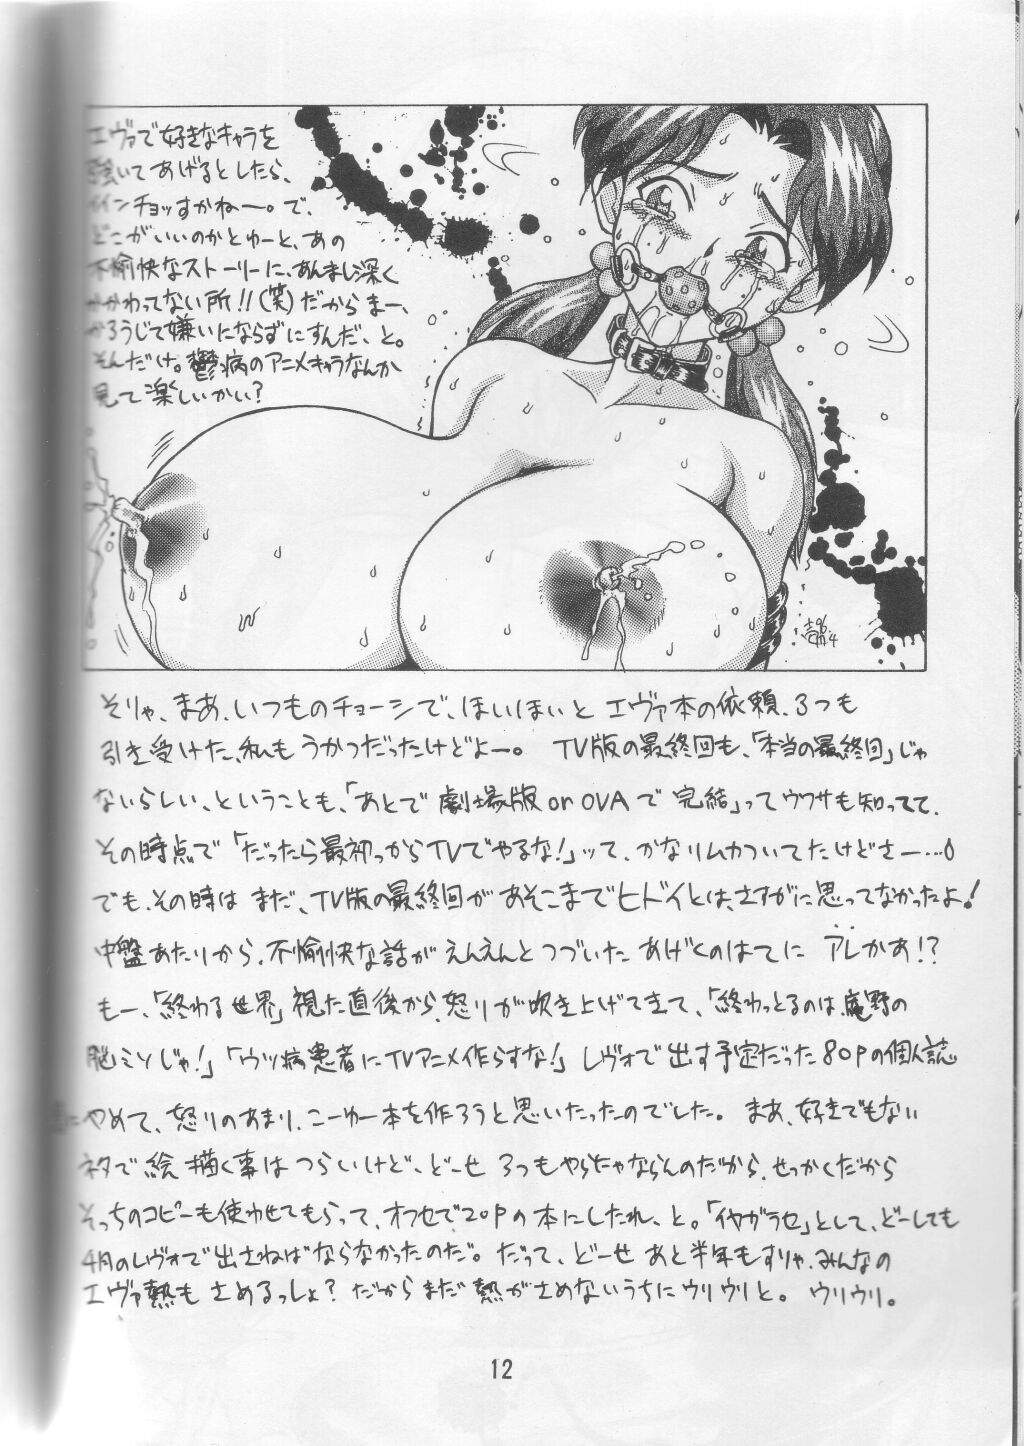 エヴァで好きなキャラを
強いてあげるとしたら、
イインチョッすかねー。で、
どこがいいのかとゆーと、あの
不愉快なストーリーに、あんまし深く
かかわってない所!!(笑)だからまー、
かろうじて嫌いにならずにすんだ、と。
そんだけ。鬱病のアニメキャラなんか
見て楽しいかい?
そりゃ、まあ、いつものチョーシで、ほいほいと エヴァ本の依頼、3つも
引き受けた、私も うかつだったけどよー。 TV版の最終回も、「本当の最終回」じゃ
ないらしい、ということも、「あとで 劇場版 or OVAで 完結」ってウワサも知ってて、
その時点で「だったら最初っからTVでやるな!」ッて、かなりムカついてたけどさー…。
でも、その時は まだ、TV版の最終回が あそこまでヒドイとは、さすがに思ってなかったよ!
中盤あたりから、不愉快な話が えんえんと つづいた あげくのはてに アレかあ!?
もー、「終わる世界」視た直後から、怒りが吹き上げてきて、「終わっとるのは、庵野の
脳ミソじゃ!」「ウツ病患者にTVアニメ作らすな!」 レヴォで出す予定だった80Pの個人誌
にやめて、怒りのあまり、こーゆー本を作ろうと思いたったのでした。 まあ、好きでもない
ネタで絵描く事は つらいけど、どーせ 3つもやらにゃならんのだから、せっかくだから
そっちのコピーも使わせてもらって、オフセで20Pの本にしたれ、と。「イヤガラセ」として、どーしても
4月のレヴォで出さねばならなかったのだ。だって、どーせ あと半年もすりゃ、みんなの
エヴァ熱も さめるっしょ? だから まだ 熱がさめないうちに ウリウリと。 ウリウリ。
12